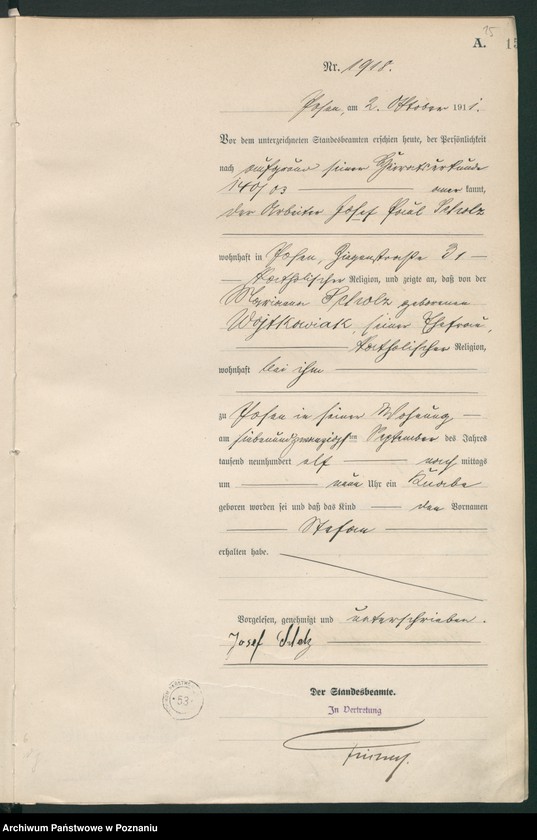 15
A. 15
Nr. 1918.
Posen, am 2. Oktober 1911.
Vor dem unterzeichneten Standesbeamten erschien heute, der Persönlichkeit
nach aufgrund seiner Heiratsurkunde
140/03 — aner kannt,
der Arbeiter Josef Paul Scholz
wohnhaft in Posen, Ziegenstraße 21
katholischer Religion, und zeigte an, daß von der
Marianna Scholz geborenen
Wojtkowiak, seiner Ehefrau,
katholischer Religion,
wohnhaft bei ihm
zu Posen in seiner Wohnung
am siebenundzwanzigsten September des Jahres
tausend neunhundert elf nach mittags
um neun Uhr ein Knabe
geboren worden sei und daß das Kind den Vornamen
Stefan
erhalten habe.
Vorgelesen, genehmigt und unterschrieben.
Josef Scholz
Der Standesbeamte.
In Vertretung
53
Archiwum Państwowe w Poznaniu